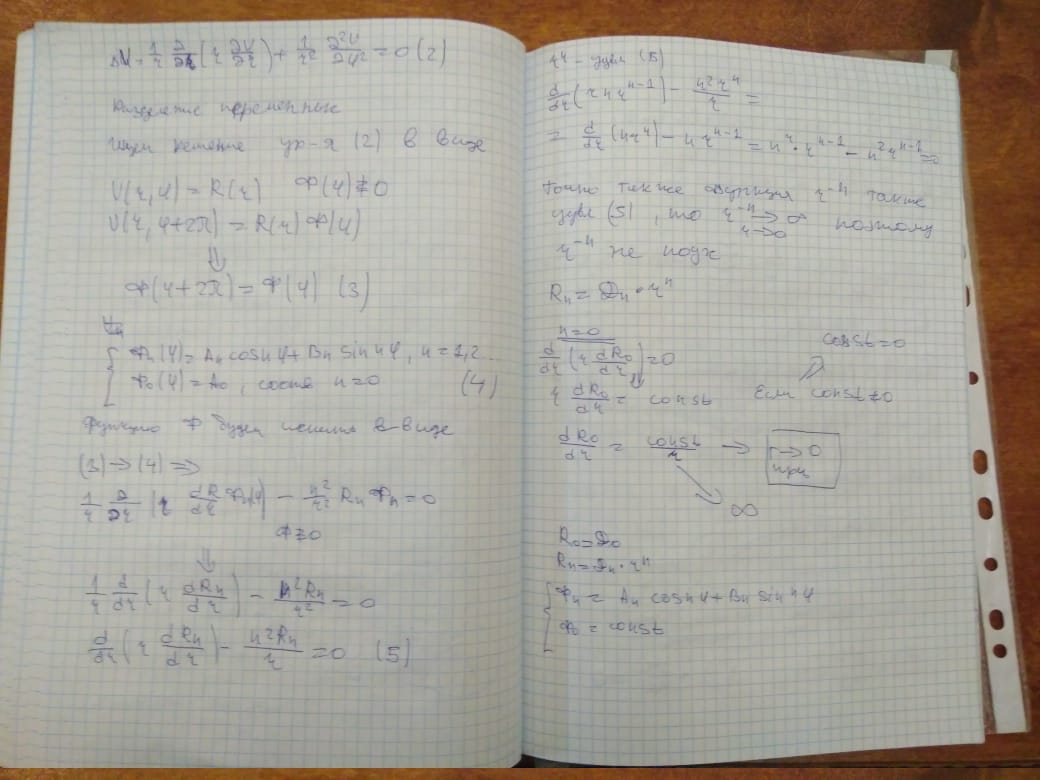 ΔU = 1/r ∂/∂r (r ∂U/∂r) + 1/r² ∂²U/∂φ² = 0 (2)
Разделение переменных
Ищем решение ур-я (2) в виде
U(r,φ) = R(r) Ф(φ) ≢ 0
U(r, φ+2π) = R(r) Ф(φ)
⇓
Ф(φ+2π) = Ф(φ) (3)
Фn(φ) = An cos nφ + Bn sin nφ, n = 1,2..
Ф0(φ) = A0, соотв n=0 (4)
Функцию Ф будем искать в виде
(3) → (4) ⇒
1/r ∂/∂r (r dR/dr Фn(φ)) - n²/r² Rn Фn = 0
Ф≢0
⇓
1/r d/dr (r dRn/dr) - n²Rn/r² = 0
d/dr (r dRn/dr) - n²Rn/r = 0 (5)
rⁿ - удвл (5)
d/dr (r n rⁿ⁻¹) - n² rⁿ/r =
= d/dr (n rⁿ) - n rⁿ⁻¹ = n² · rⁿ⁻¹ - n² rⁿ⁻¹ = 0
Точно так же функция r⁻ⁿ также
удвл (5), но r⁻ⁿ → ∞ поэтому
r→0
r⁻ⁿ не подх
Rn = Dn · rⁿ
n=0
d/dr (r dR0/dr) = 0
const=0
r dR0/dr = const
Если const≠0
dR0/dr = const/r → r→0
при
∞
R0 = D0
Rn = Dn · rⁿ
Фn = An cos nφ + Bn sin nφ
Ф0 = const